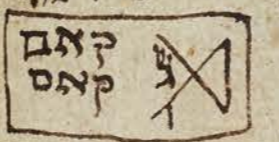 קאם
קאס